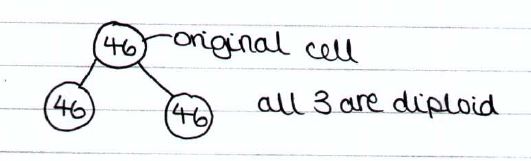 46 original cell
46 46 all 3 are diploid